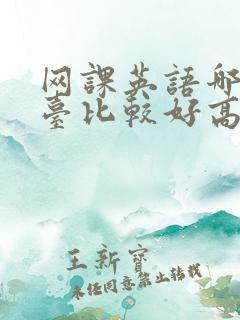 网課英語哪
臺比較好高
王新寶
未经同意禁止转载